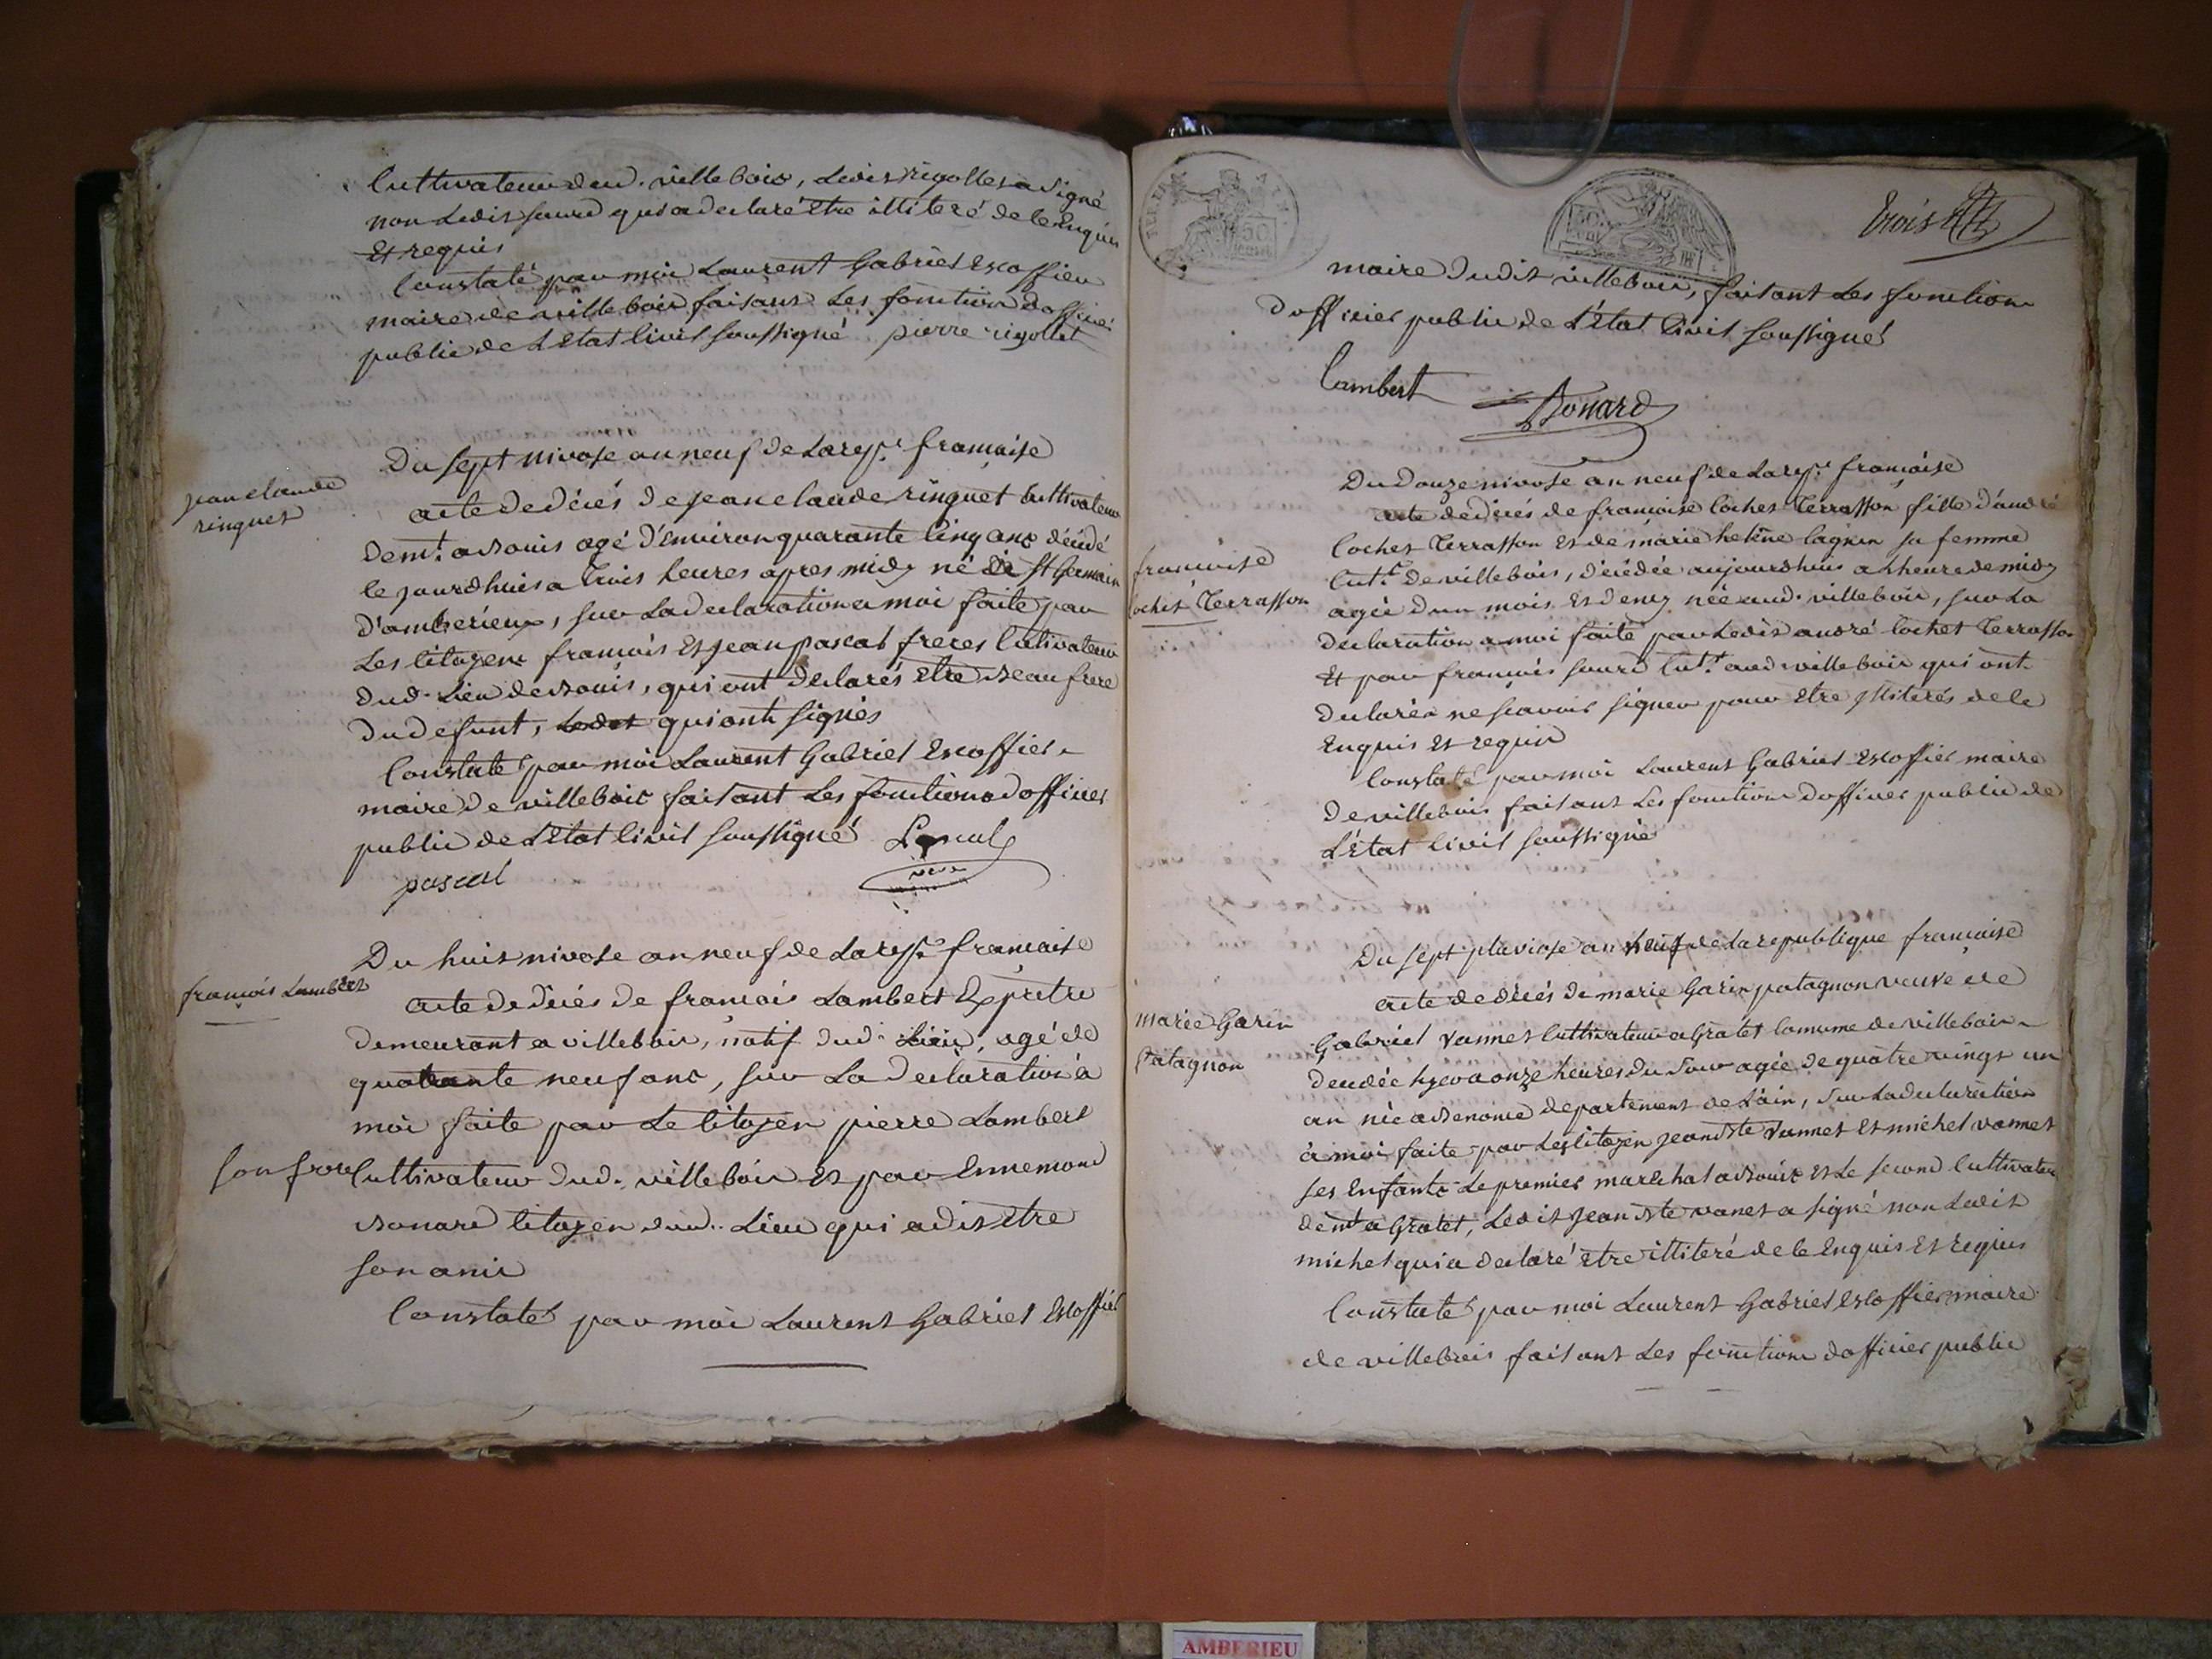 Cultivateur dud. villebois, Ledit rigollet a signé
non Ledit Sourd qui a declaré Etre illiteré de le Enquis
Et requis
Constaté par moi Laurent Gabriel Escoffier
maire de villebois faisant Les fonction d'officier
public de L'Etat Civil soussigné pierre rigollet
Du sept nivose an neuf de La rep.e francaise
jean claude
ringuet
acte de décés de jean claude ringuet Cultivateur
dem.t a Bouis agé d'Environ quarante Cinq ans décédé
le jourdhui a trois heures apres midy né de St Germain
d'amberieux, sur La declaration a moi faite par
Les Citoyens françois Et jean pascal freres Cultivateurs
dud. Lieu de Bouis, qui ont declarés Etre Beau frere
du defunt, qui ont signés
Constaté par moi Laurent Gabriel Escoffier
maire de villebois faisant Les fonctions d'officier
public de L'Etat Civil soussigné Pascal
pascal
Du huit nivose an neuf de La rep.e francaise
françois Lambert
acte de décés de françois Lambert Exprêtre
demeurant a villebois, natif dud. Lieu, agé de
quarante neuf ans, sur La declaration à
moi faite par Le Citoyen pierre Lambert
son frere Cultivateur dud. villebois Et par Ennemond
Bonard Citoyen dud. Lieu qui a dit Etre
son ami
Constaté par moi Laurent Gabriel Escoffier
trois
maire dudit villebois, faisant Les fonction
d'officier public de L'état Civil soussigné
Lambert
Bonard
Du douze nivose an neuf de La rep.e françoise
françoise
cochet Terrasson
acte de décés de françoise cochet Terrasson fille d'andré
cochet Terrasson Et de marie helène Cagnin sa femme
Cult.r de villebois, décédée aujourdhui a Lheure de midy
agée d'un mois Et demy née aud. villebois, sur La
declaration a moi faite par Ledit andré cochet Terrasson
Et par françois Sourd Cult.r aud. villebois qui ont
declarés ne sçavoir signer pour Etre illiterés de le
Enquis Et requis
Constaté par moi Laurent Gabriel Escoffier maire
de villebois faisant Les fonction d'officier public de
L'état Civil soussigné
Du sept pluviose an neuf de La republique françaíse
marie Garin
Patagnon
acte de décés de marie Garin patagnon veuve de
Gabriel vannet Cultivateur a Gratet Commune de villebois
decedée hyer a onze heures du soir agée de quatre vingt un
an née a Benonce departement de L'ain, sur La declaration
à moi faite par Les Citoyen jean Bte vannet Et michel vannet
ses Enfants Le premier marechal a Bouis Et Le second Cultivateur
dem.t a Gratet, Ledit jean Bte vanet a signé non Ledit
michel qui a declaré Etre illiteré de le Enquis Et requis
Constaté par moi Laurent Gabriel Escoffier maire
de villebois faisant Les fonction d'officier public
AMBERIEU